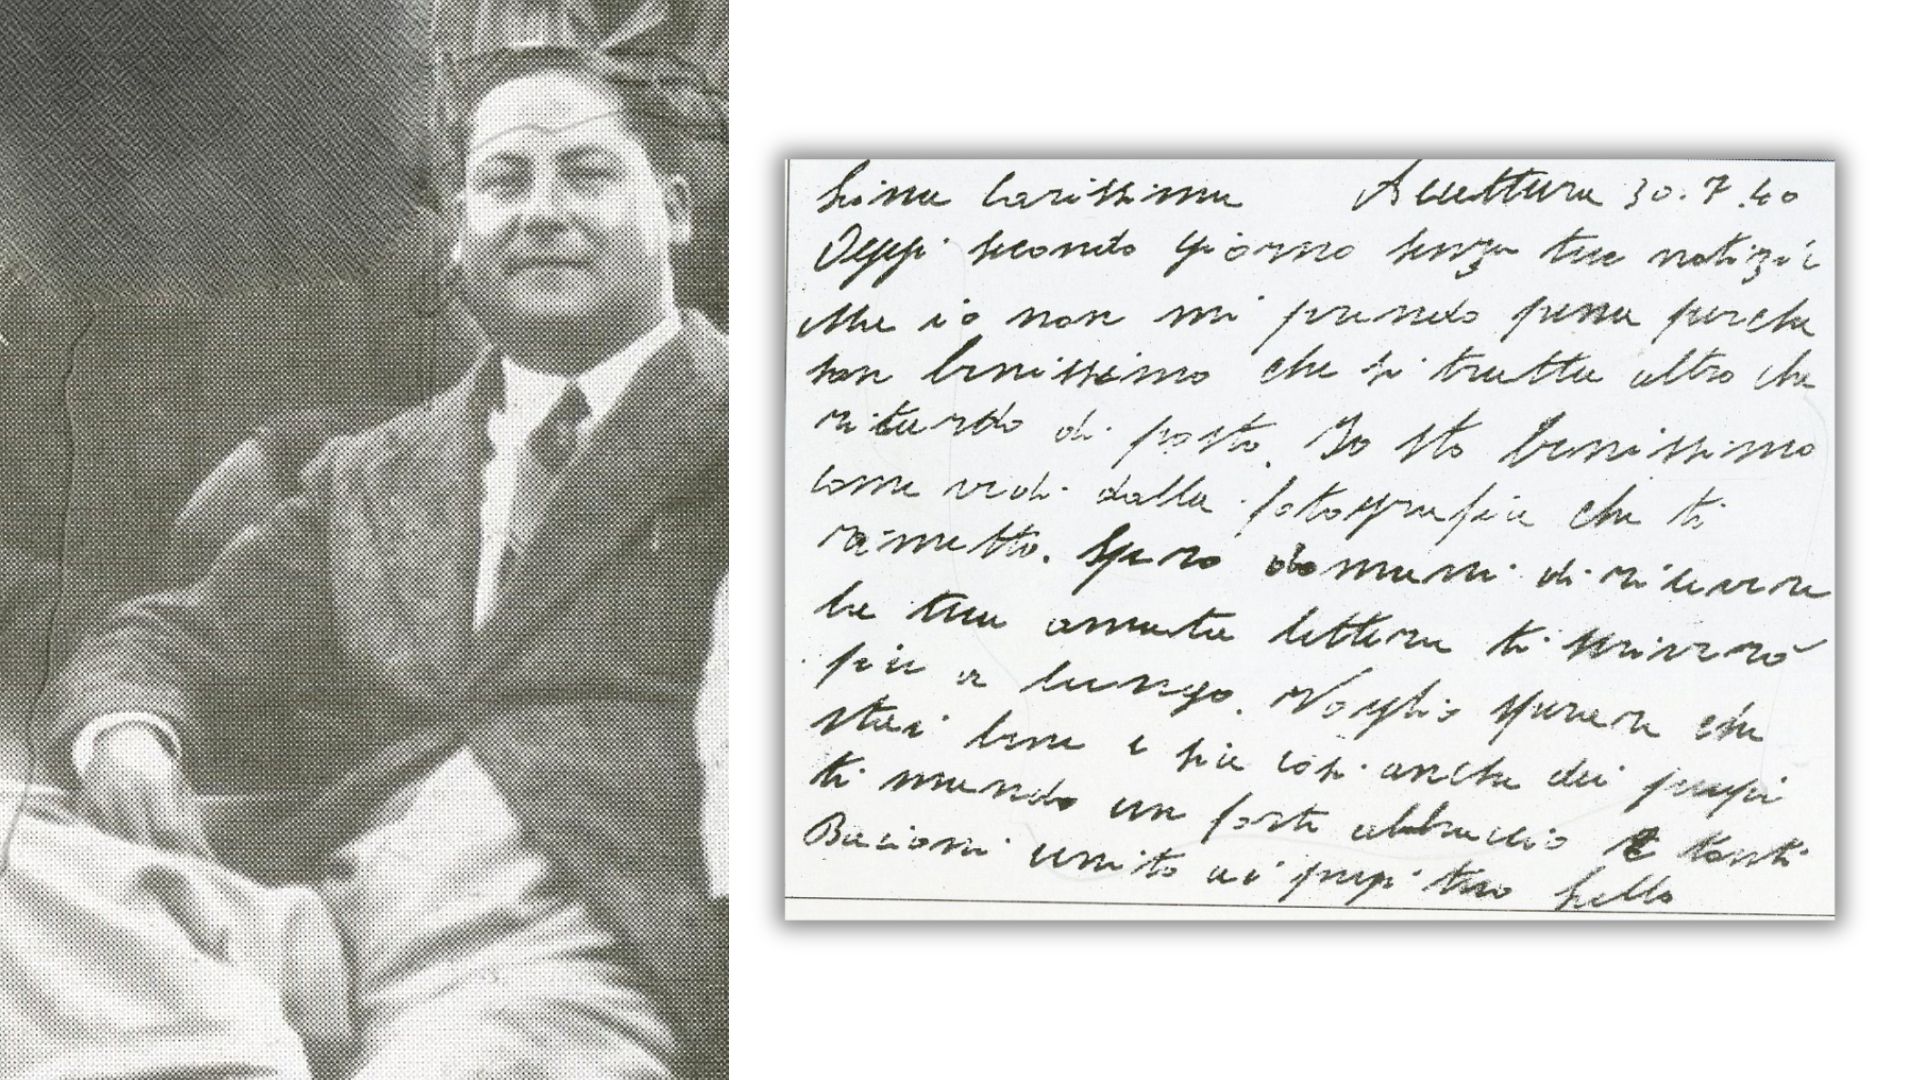 Lina Carissima Accettura 30.7.40
Oggi secondo giorno senza tue notizie
che io non mi prendo pena perche
son benissimo che si tratta altro che
ritardo di posta. Io sto benissimo
come vedi dalla fotografia che ti
rimetto. Spero domani di ricevere
la tua amata lettera ti scriverò
più a lungo. Voglio sperare che
stai bene e sia così anche dei pupi
ti mando un forte abbraccio e tanti
Bacioni unito ai pupi tuo Lello